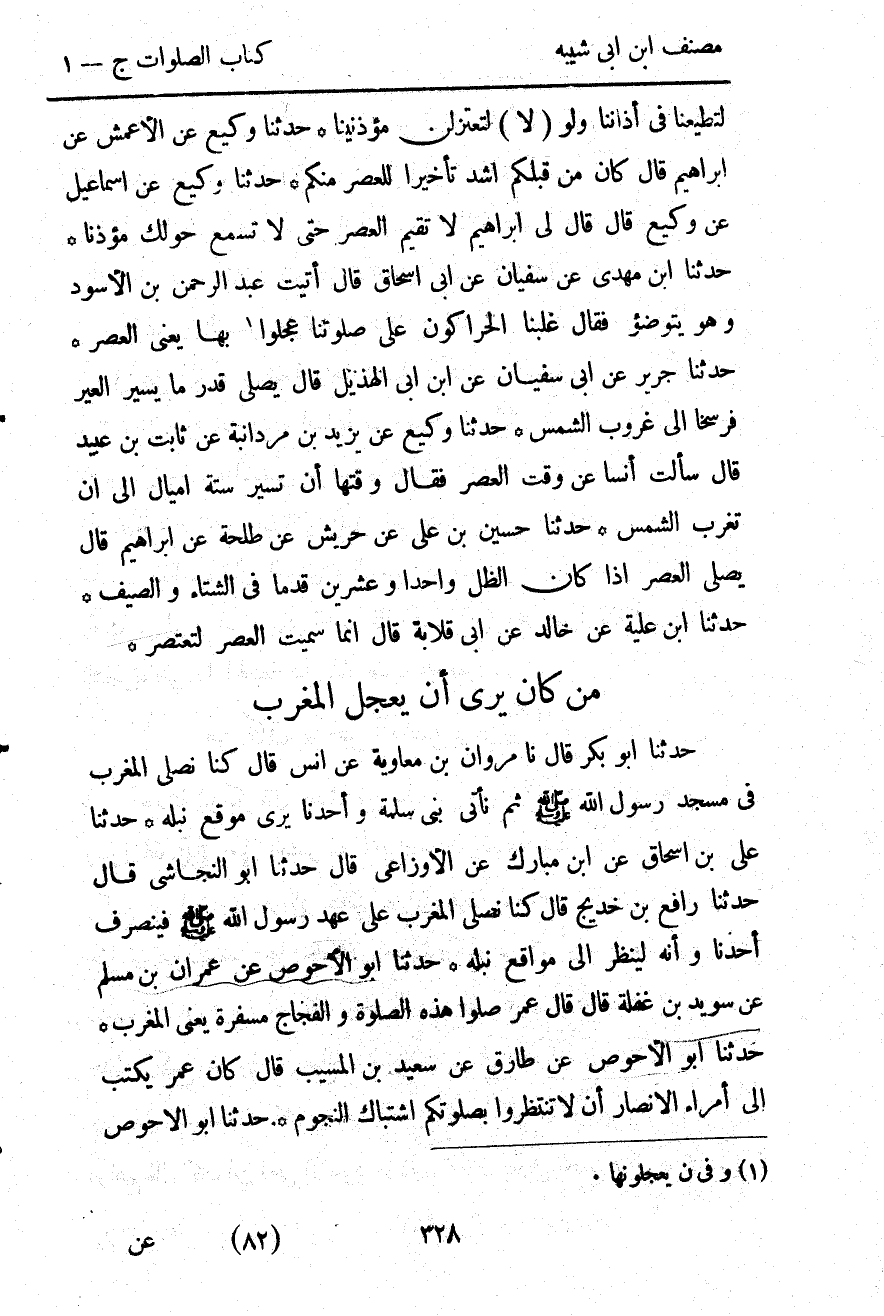 مصنف ابن ابى شيبه
كتاب الصلوات ج — ١
لتطيعنا فى أذاننا ولو (لا) لتعتزلن مؤذنينا * حدثنا وكيع عن الأعمش عن
ابراهيم قال كان من قبلكم اشد تأخيرا للعصر منكم * حدثنا وكيع عن اسماعيل
عن وكيع قال قال لى ابراهيم لا تقيم العصر حتى لا تسمع حولك مؤذنا *
حدثنا ابن مهدى عن سفيان عن ابى اسحاق قال أتيت عبد الرحمن بن الآسود
و هو يتوضؤ فقال غلبنا الحراكون على صلوتنا عجلوا ١ بهـا يعنى العصر *
حدثنا جربر عن ابى سفيـان عن ابن ابى الهذيل قال يصلى قدر ما يسير العير
فرسخا الى غروب الشمس * حدثنا وكيع عن يزيد بن مردانبة عن ثابت بن عبيد
قال سألت أنسا عن وقت العصر فقـال وقتها أن تسير ستة اميال الى ان
تغرب الشمس * حدثنا حسين بن على عن حريش عن طلحة عن ابراهيم قال
يصلى العصر اذا كان الظل واحدا و عشرين قدما فى الشتاء و الصيف *
حدثنا ابن علية عن خالد عن ابى قلابة قال انما سميت العصر لتعتصر *
من كان يرى أن يعجل المغرب
حدثنا ابو بكر قال نا مروان بن معاوية عن انس قال كنا نصلى المغرب
فى مسجد رسول الله ﷺ ثم نأتى بنى سلمة و أحدنا يرى موقع نبله * حدثنا
على بن اسحاق عن ابن مبارك عن الآوزاعى قال حدثنا ابو النجـاشى قـال
حدثنا رافع بن خديج قال كنا نصلى المغرب على عهد رسول الله ﷺ فينصرف
أحدنا و أنه لينظر الى مواقع نبله * حدثنا ابو الأحوص عن عمران بن مسلم
عن سويد بن غفلة قال قال عمر صلوا هذه الصلوة و الفجاج مسفرة يعنى المغرب *
حدثنا ابو الآحوص عن طارق عن سعيد بن المسيب قال كان عمر يكتب
الى أمراء الانصار أن لا تنتظروا بصلوتكم اشتباك النجوم *. حدثنا ابو الاحوص
(١) و فى ن يعجلونها .
٣٢٨ (٨٢) عن